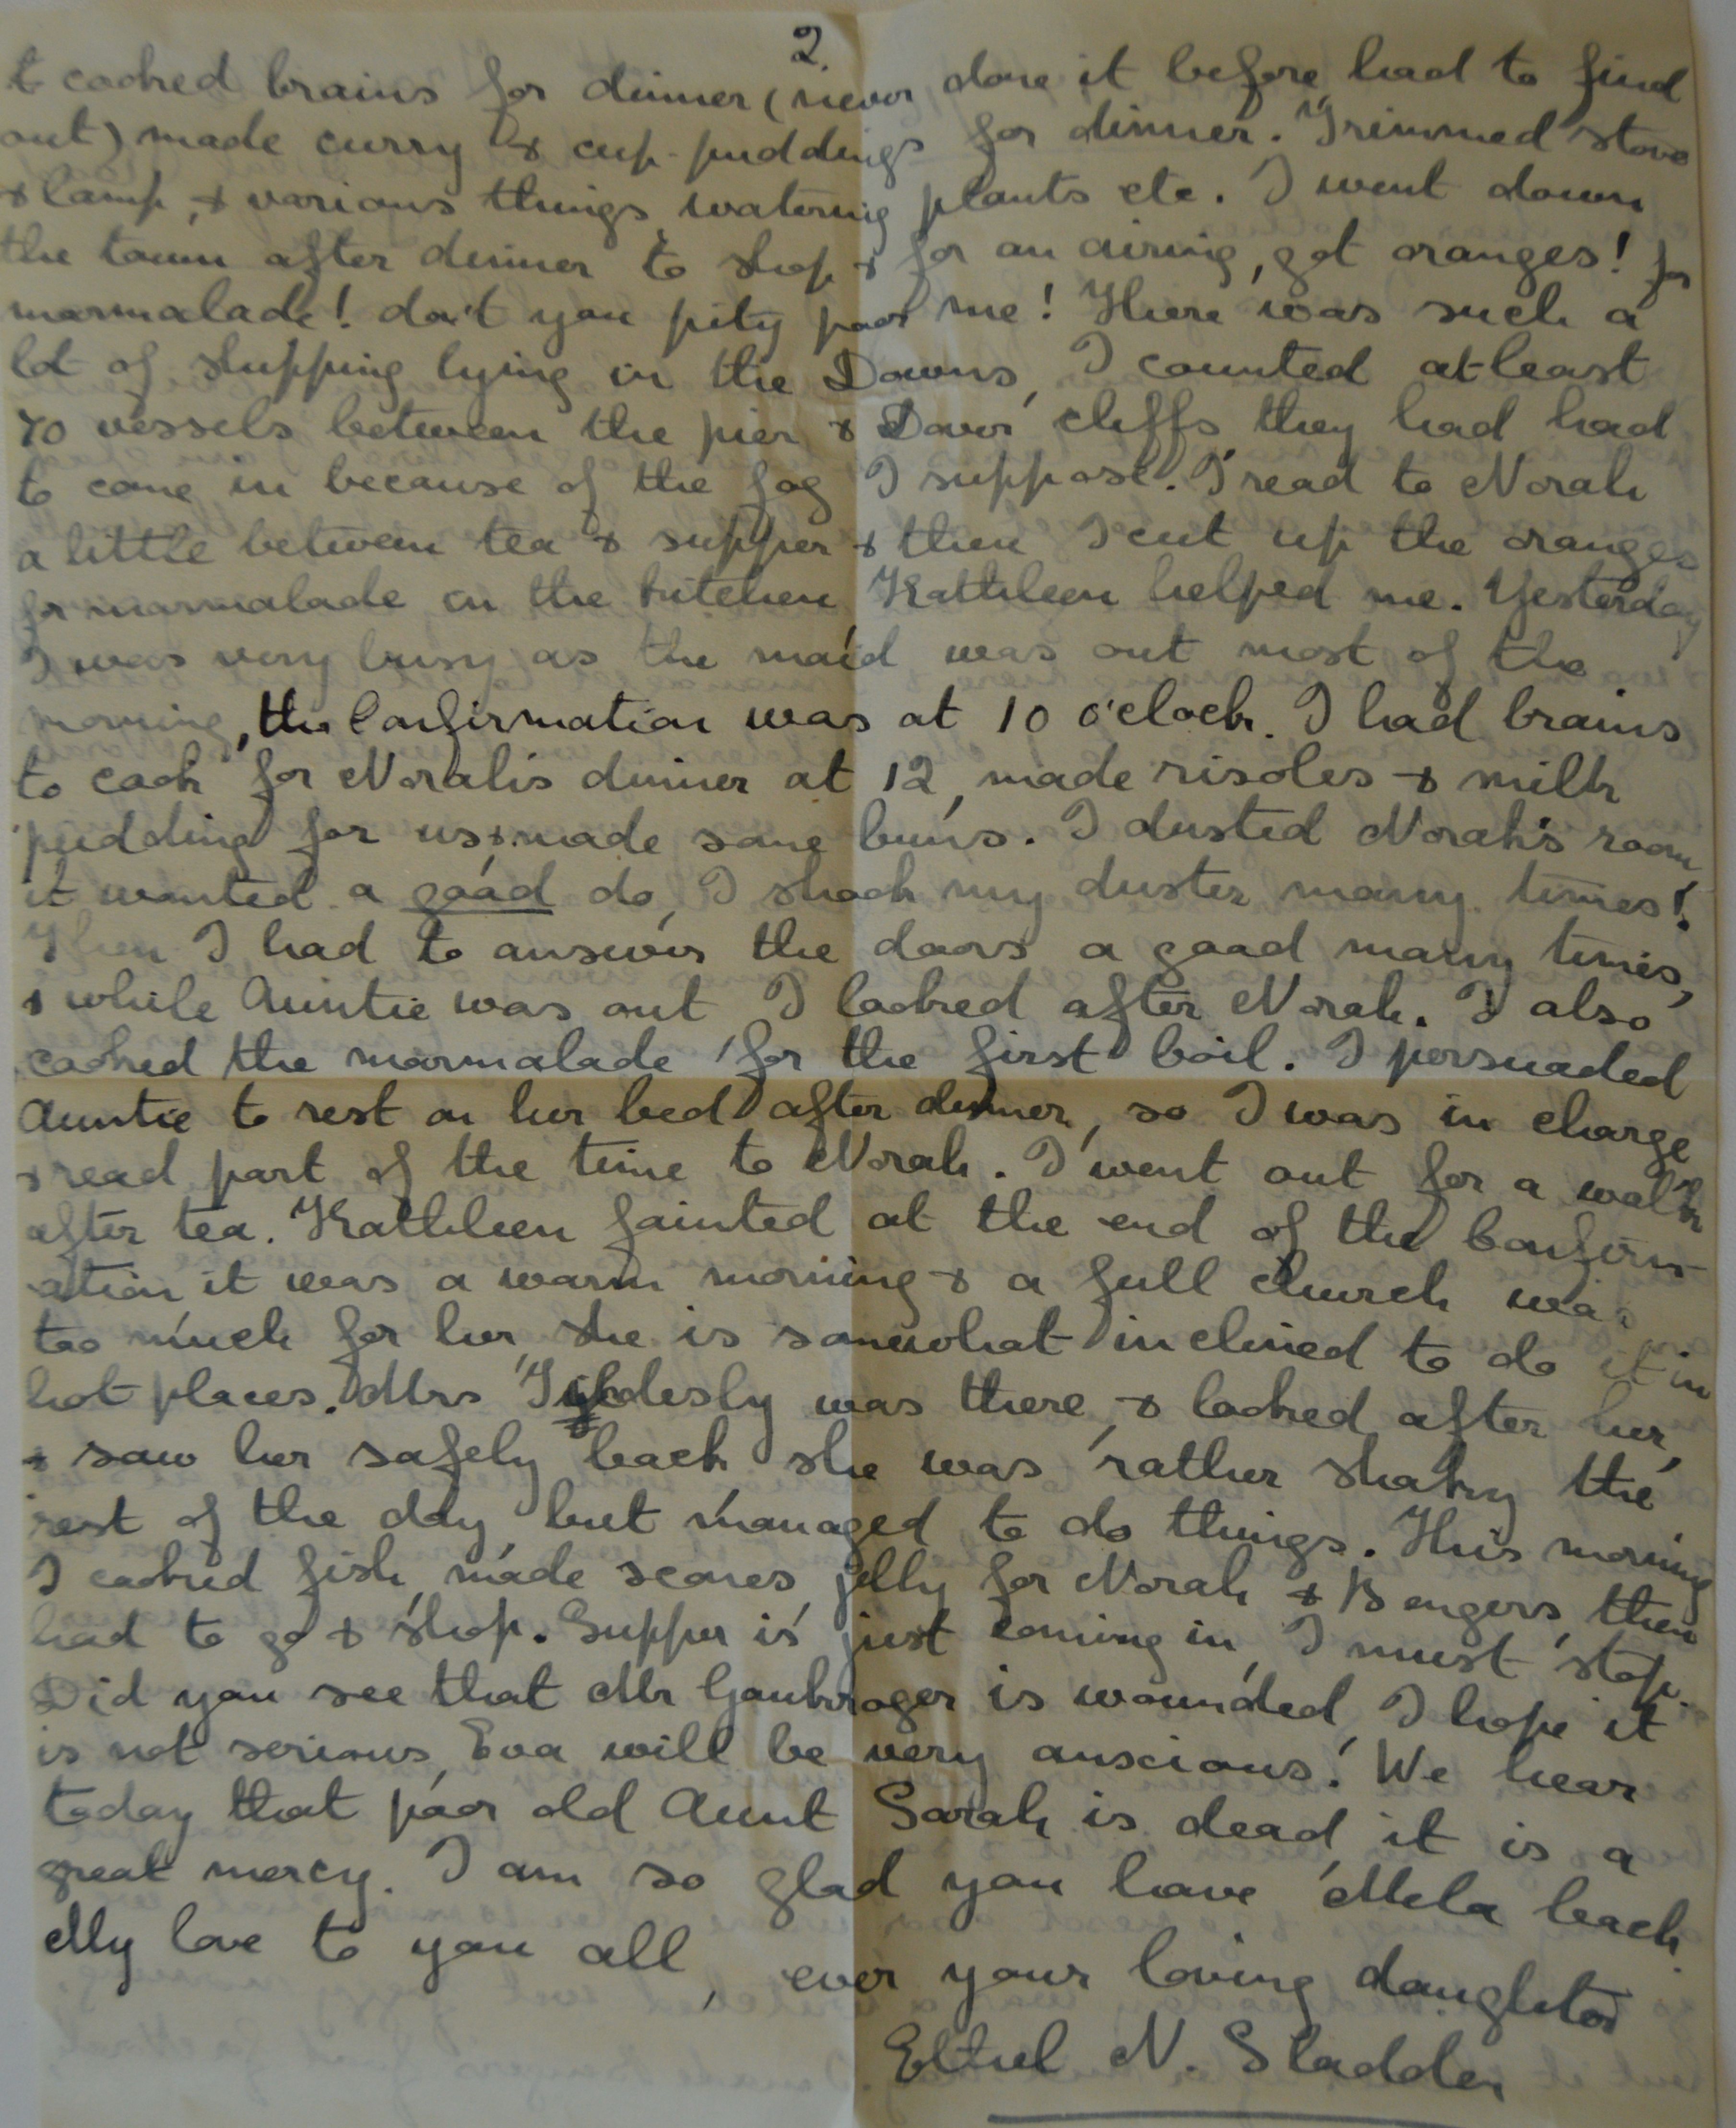 2.
& cooked brains for dinner (never done it before, had to find
out) made curry & cup-puddings for dinner. Trimmed stove
& lamp, & various things, watering plants etc. I went down
the town after dinner to shop & for an airing, got oranges! for
marmalade! don't you pity poor me! There was such a
lot of shipping lying in the Downs, I counted at least
70 vessels between the pier & Dover cliffs, they had had
to come in because of the fog I suppose. I read to Norah
a little between tea & supper & then I cut up the oranges
for marmalade in the kitchen, Kathleen helped me. Yesterday
I was very busy as the maid was out most of the
morning, the Confirmation was at 10 o'clock. I had brains
to cook for Norah's dinner at 12, made risoles & milk
pudding for us & made some buns. I dusted Norah's room,
it wanted a good do, I shook my duster many times!
Then I had to answer the doors a good many times,
& while Auntie was out I looked after Norah. I also
cooked the marmalade for the first boil. I persuaded
Auntie to rest on her bed after dinner, so I was in charge
& read part of the time to Norah. I went out for a walk
after tea. Kathleen fainted at the end of the Confirm-
ation, it was a warm morning & a full church was
too much for her, she is somewhat inclined to do it in
hot places. Mrs Tyldesly was there, & looked after her,
& saw her safely back, she was rather shaky the
rest of the day but managed to do things. This morning
I cooked fish, made scones, jelly for Norah & Bengers, then
had to go & shop. Supper is just coming in, I must stop.
Did you see that Mr Gaukroger is wounded, I hope it
is not serious, Eva will be very anscious! We hear
today that poor old Aunt Sarah is dead, it is a
great mercy. I am so glad you have Mela back.
My love to you all, ever your loving daughter
Ethel N. Sladden